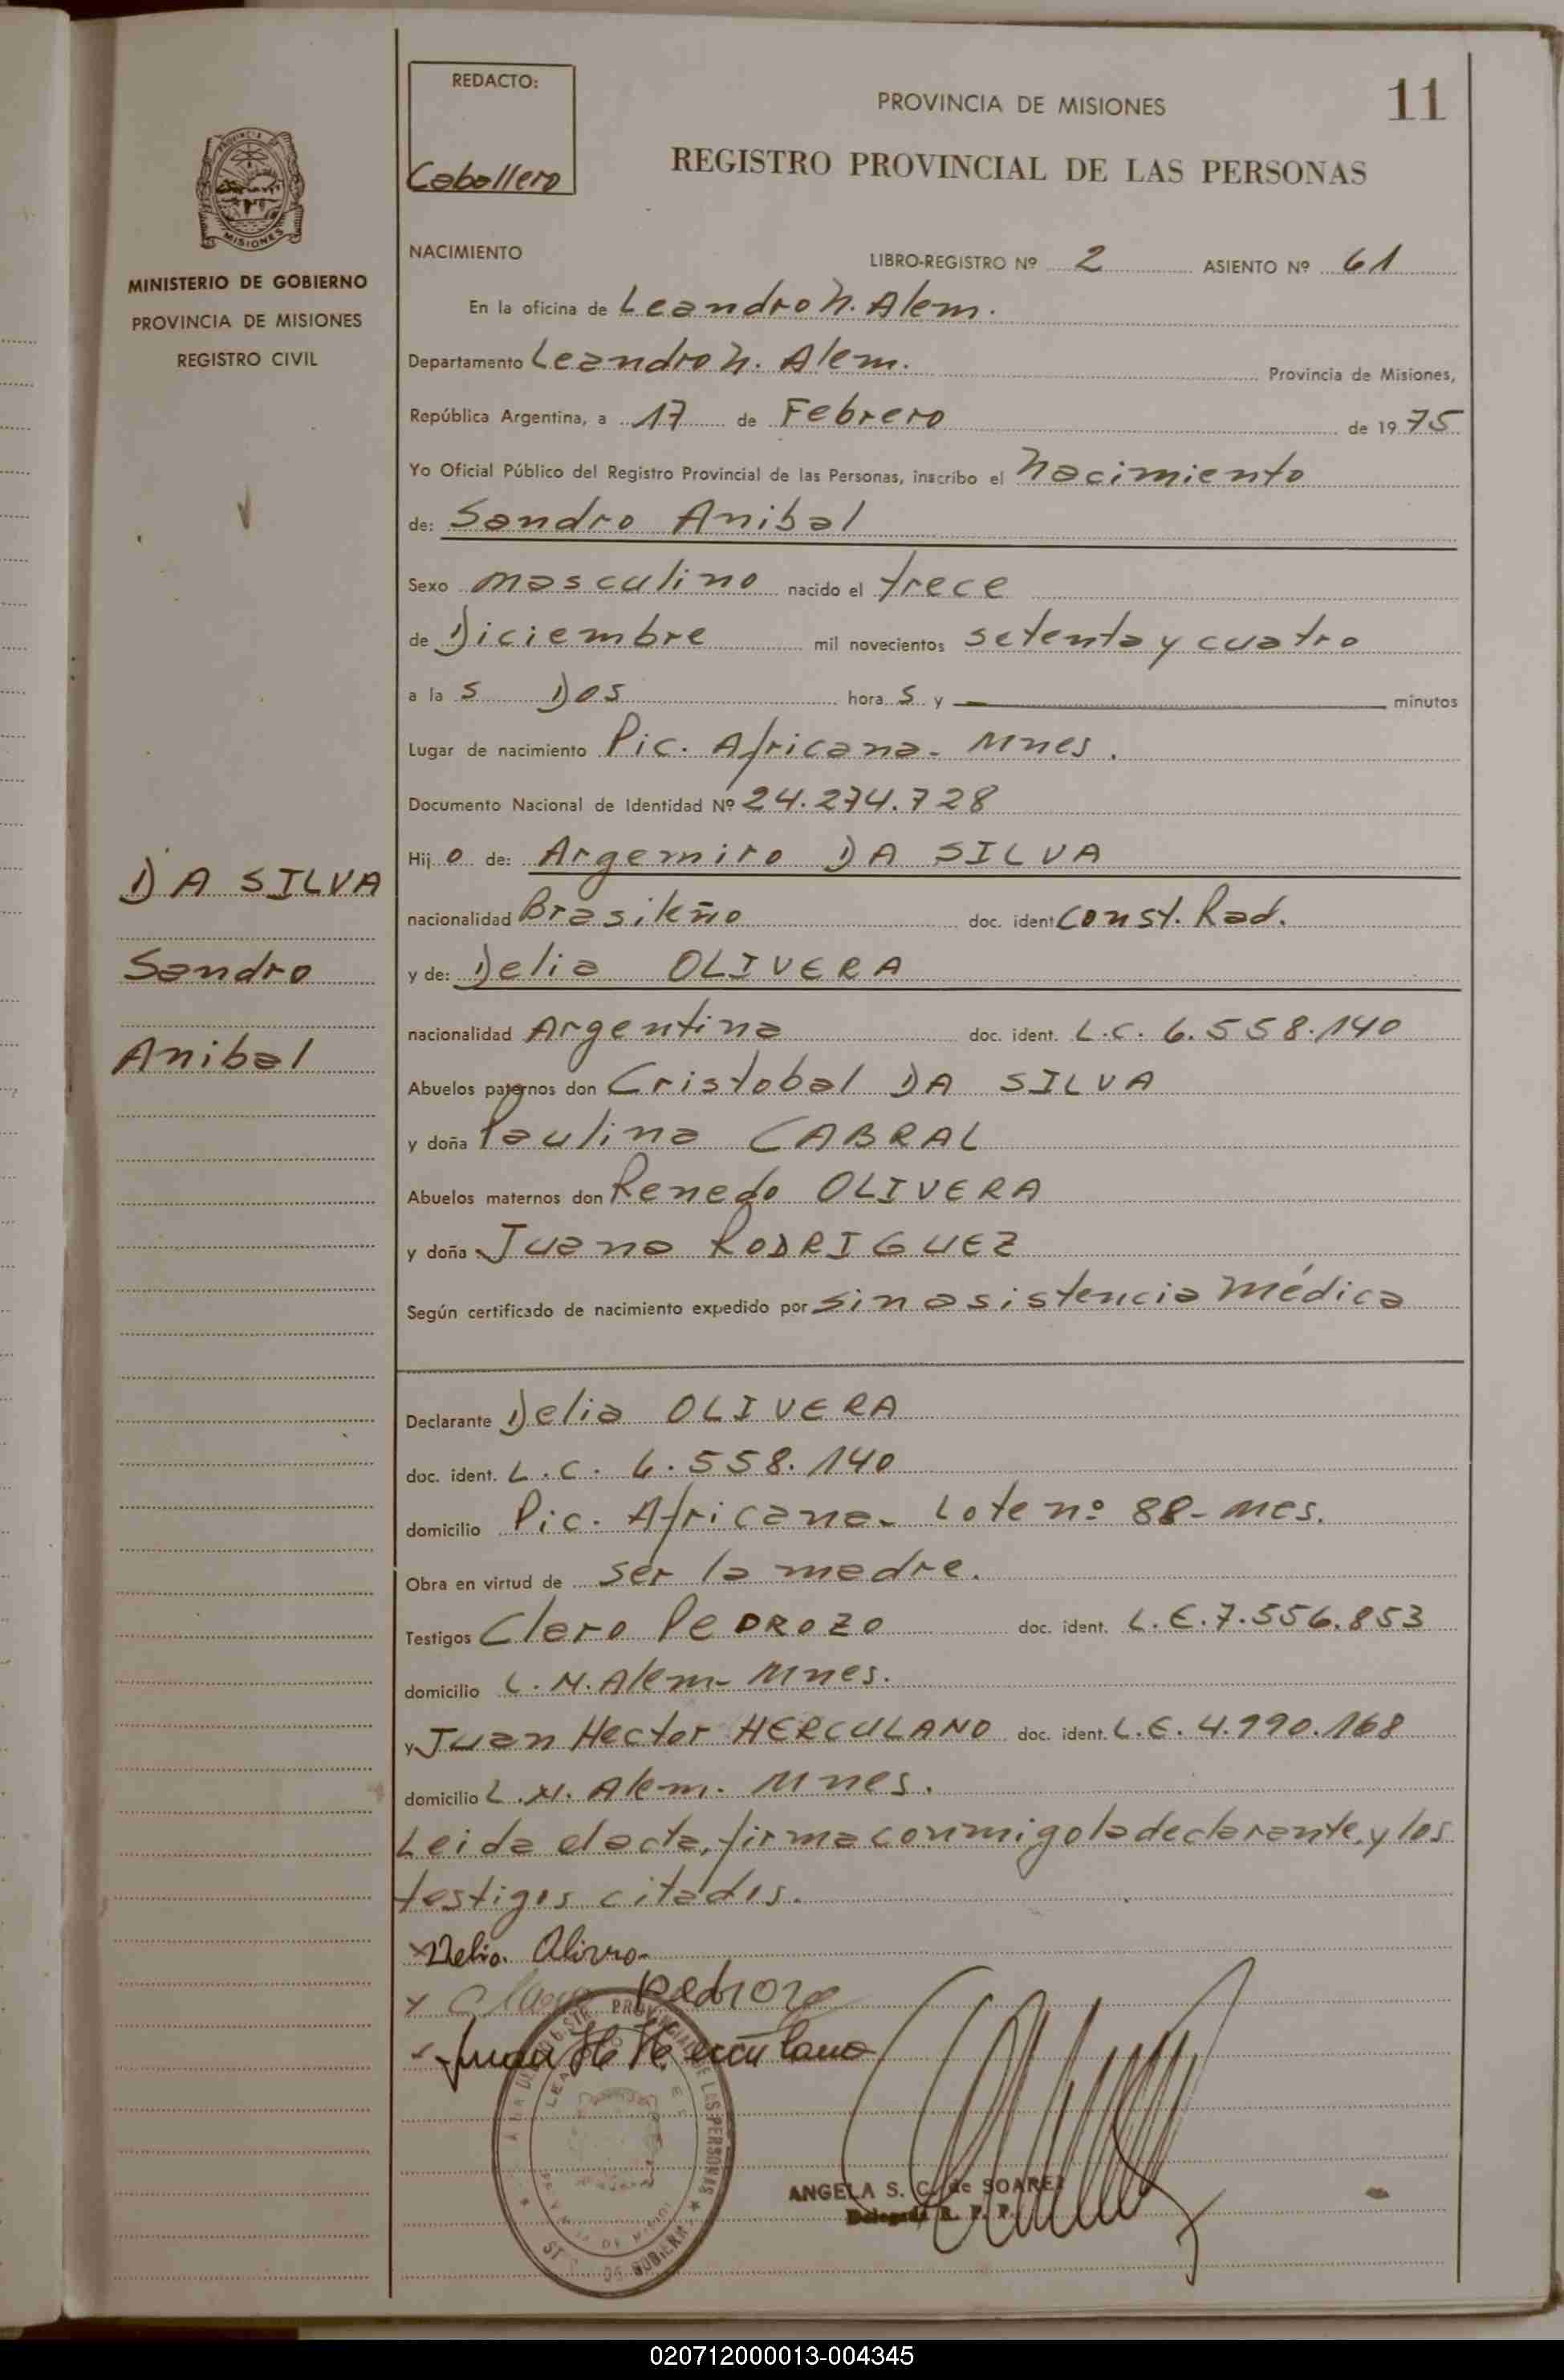 REDACTO:
Caballero
PROVINCIA DE MISIONES
11
REGISTRO PROVINCIAL DE LAS PERSONAS
MISIONES
MINISTERIO DE GOBIERNO
PROVINCIA DE MISIONES
REGISTRO CIVIL
NACIMIENTO
LIBRO-REGISTRO Nº 2 ASIENTO Nº 61
En la oficina de Leandro N. Alem.
Departamento Leandro N. Alem. Provincia de Misiones,
República Argentina, a 17 de Febrero de 1975
Yo Oficial Público del Registro Provincial de las Personas, inscribo el Nacimiento
de: Sandro Anibal
Sexo masculino nacido el trece
de Diciembre mil novecientos setenta y cuatro
a las Dos horas y — minutos
Lugar de nacimiento Pic. Africana - Mnes.
Documento Nacional de Identidad Nº 24.274.728
DA SILVA
Sandro
Anibal
Hijo de: Argemiro DA SILVA
nacionalidad Brasileño doc. ident Const. Rad.
y de: Delia OLIVERA
nacionalidad Argentina doc. ident. L.C. 6.558.140
Abuelos paternos don Cristobal DA SILVA
y doña Paulina CABRAL
Abuelos maternos don Renedo OLIVERA
y doña Juana RODRIGUEZ
Según certificado de nacimiento expedido por sin asistencia médica
Declarante Delia OLIVERA
doc. ident. L.C. 6.558.140
domicilio Pic. Africana - Lote nº 88 - Mes.
Obra en virtud de ser la madre.
Testigos Claro PEDROZO doc. ident. L.E. 7.556.853
domicilio L.N. Alem - Mnes.
y Juan Hector HERCULANO doc. ident. L.E. 4.990.168
domicilio L.N. Alem. Mnes.
Leida el acta, firma conmigo la declarante, y los
testigos citados.
Delia Olivera
Claro Pedrozo
Juan H Herculano
ANGELA S. C. de SOAREZ
Delegada R. P. P.
020712000013-004345